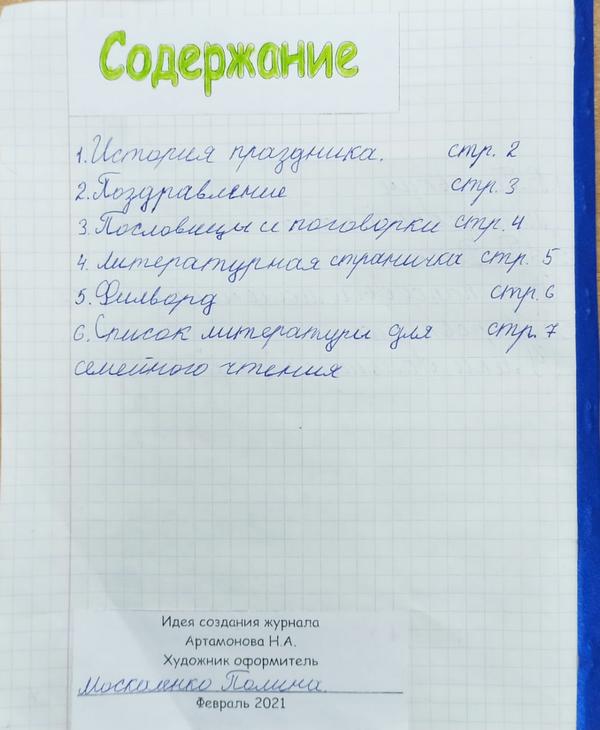 Содержание
1. История праздника. стр. 2
2. Поздравление стр. 3
3. Пословицы и поговорки стр. 4
4. Литературная страничка стр. 5
5. Филворд стр. 6
6. Список литературы для стр. 7
семейного чтения
Идея создания журнала
Артамонова Н.А.
Художник оформитель
Москаленко Полина.
Февраль 2021